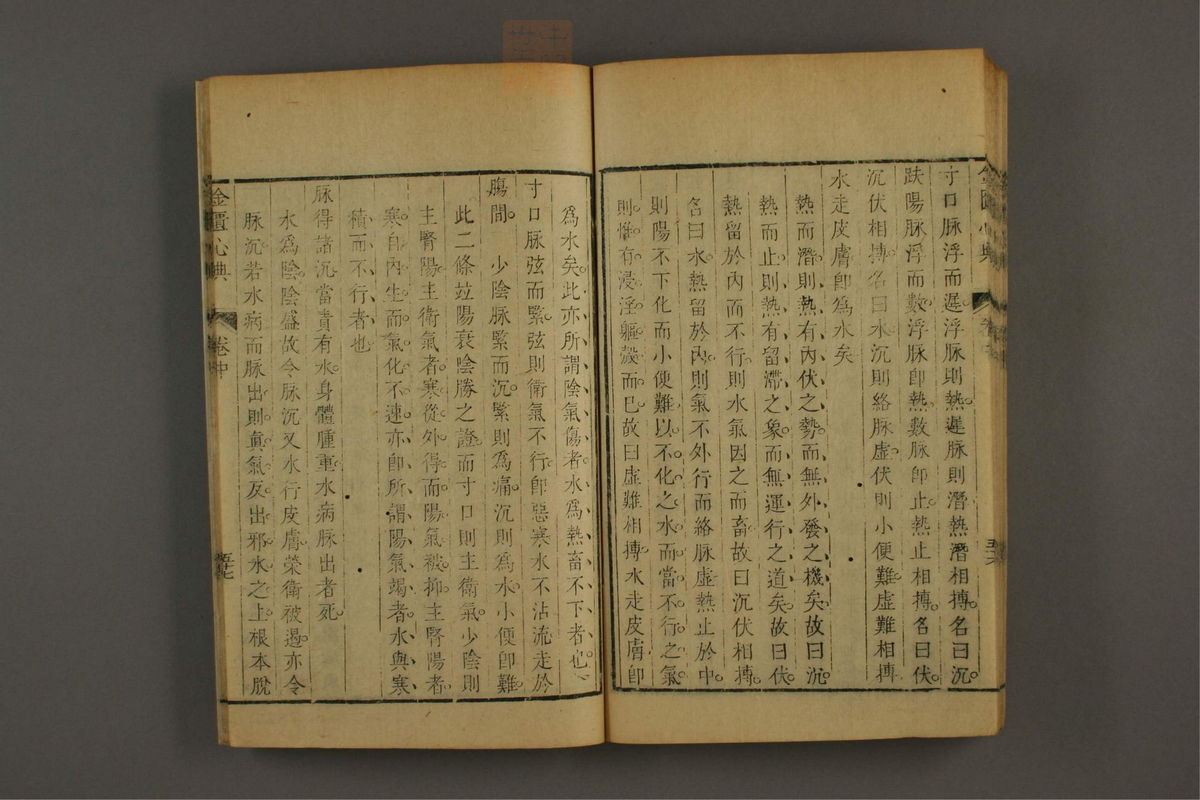 寸口脉浮而遲浮脉則熱遲脉則潛熱潛相搏名曰沉
趺陽脉浮而數浮脉卽熱數脉卽止熱止相搏名曰伏
沉伏相搏名曰水沉則絡脉虛伏則小便難虛難相搏
水走皮膚卽爲水矣
熱而潛則熱有內伏之勢而無外發之機矣故曰沉
熱而止則熱有留滯之象而無運行之道矣故曰伏
熱留於內而不行則水氣因之而畜故曰沉伏相搏
名曰水熱留於內則氣不外行而絡脉虛熱止於中
則陽不下化而小便難以不化之水而當不行之氣
則惟有浸淫軀殼而已故曰虛難相搏水走皮膚卽
爲水矣此亦所謂陰氣傷者水爲熱畜不下者也
寸口脉弦而緊弦則衛氣不行卽惡寒水不沾流走於
腸間 少陰脉緊而沉緊則爲痛沉則爲水小便卽難
此二條竝陽衰陰勝之證而寸口則主衛氣少陰則
主腎陽主衛氣者寒從外得而陽氣被抑主腎陽者
寒自內生而氣化不速亦卽所謂陽氣竭者水與寒
積而不行者也
脉得諸沉當責有水身體腫重水病脉出者死
水爲陰陰盛故令脉沉又水行皮膚榮衛被遏亦令
脉沉若水病而脉出則眞氣反出邪水之上根本脫
金匱心典 卷中 五十七